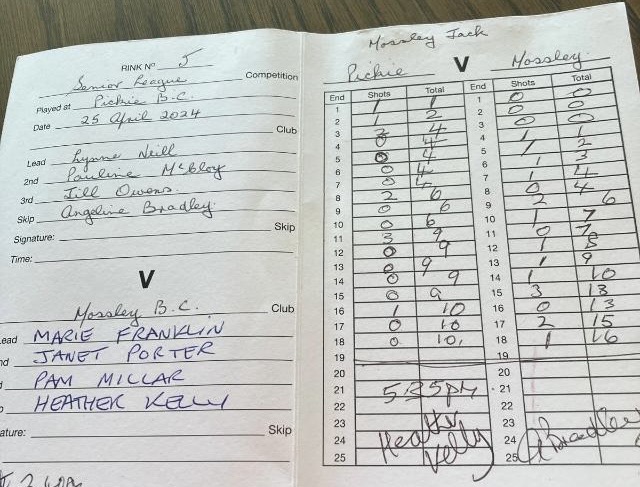 RINK Nº 5
Senior League Competition
Played at Pickie B.C.
Date 25 April 2024
Club
Lead Lynne Neill
2nd Pauline McBloy
3rd Jill Owens
Skip Angeline Bradley
Signature: Skip
Time:
V
Mossley B.C. Club
ead MARIE FRANKLIN
nd JANET PORTER
d PAM MILLAR
p HEATHER KELLY
ature: Skip
Mossley Jack
Pickie V Mossley
End Shots Total End Shots Total
1 1 1 1 0 0
2 1 2 2 0 0
3 2 4 3 0 0
4 0 4 4 1 1
5 0 4 5 1 2
6 0 4 6 1 3
7 0 4 7 1 4
8 2 6 8 0 4
9 0 6 9 2 6
10 0 6 10 1 7
11 3 9 11 0 7
12 0 9 12 1 8
13 0 9 13 1 9
14 0 9 14 1 10
15 0 9 15 3 13
16 1 10 16 0 13
17 0 10 17 2 15
18 0 10. 18 1 16
19 19
20 20
21 5.35PM 21
22 22
23 Heather 23
24 Kelly 24 A Bradley
25 25